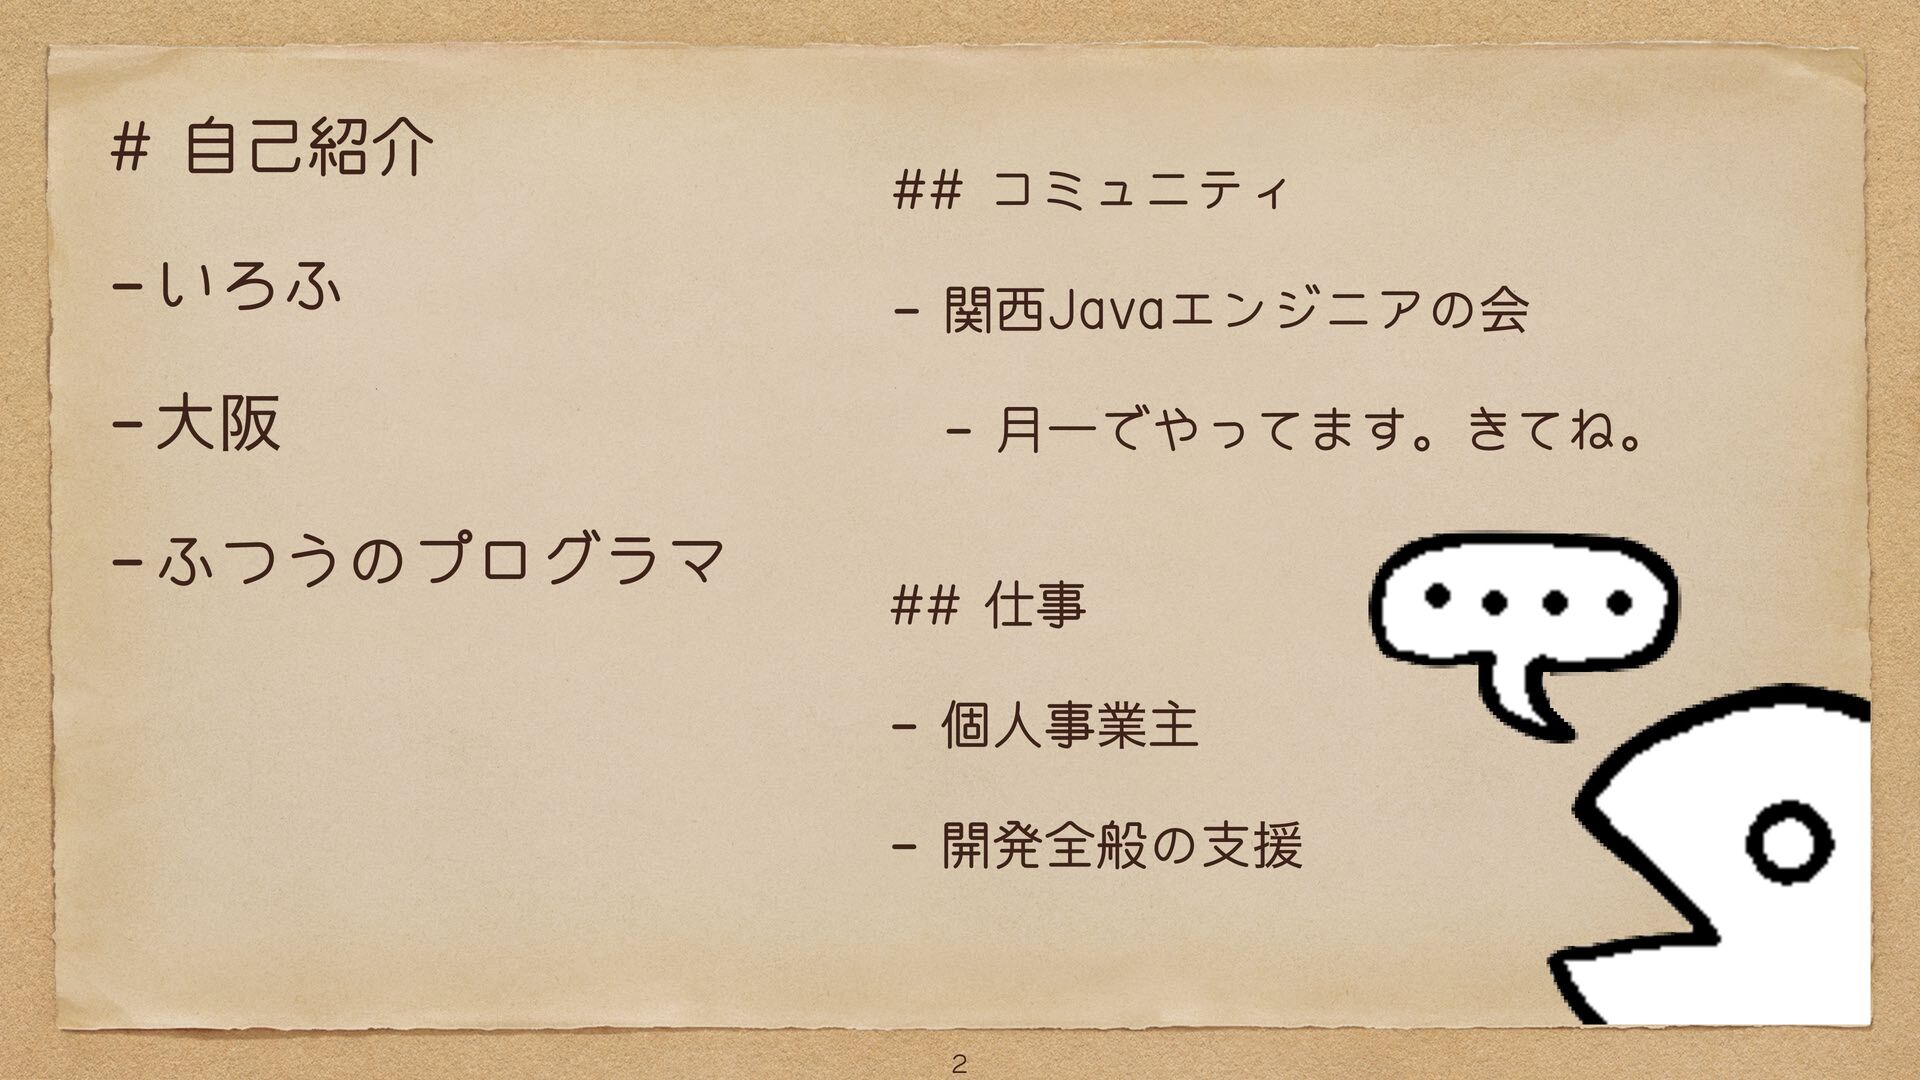 # 自己紹介
- いろふ
- 大阪
- ふつうのプログラマ
## コミュニティ
- 関西Javaエンジニアの会
- 月一でやってます。きてね。
## 仕事
- 個人事業主
- 開発全般の支援
2